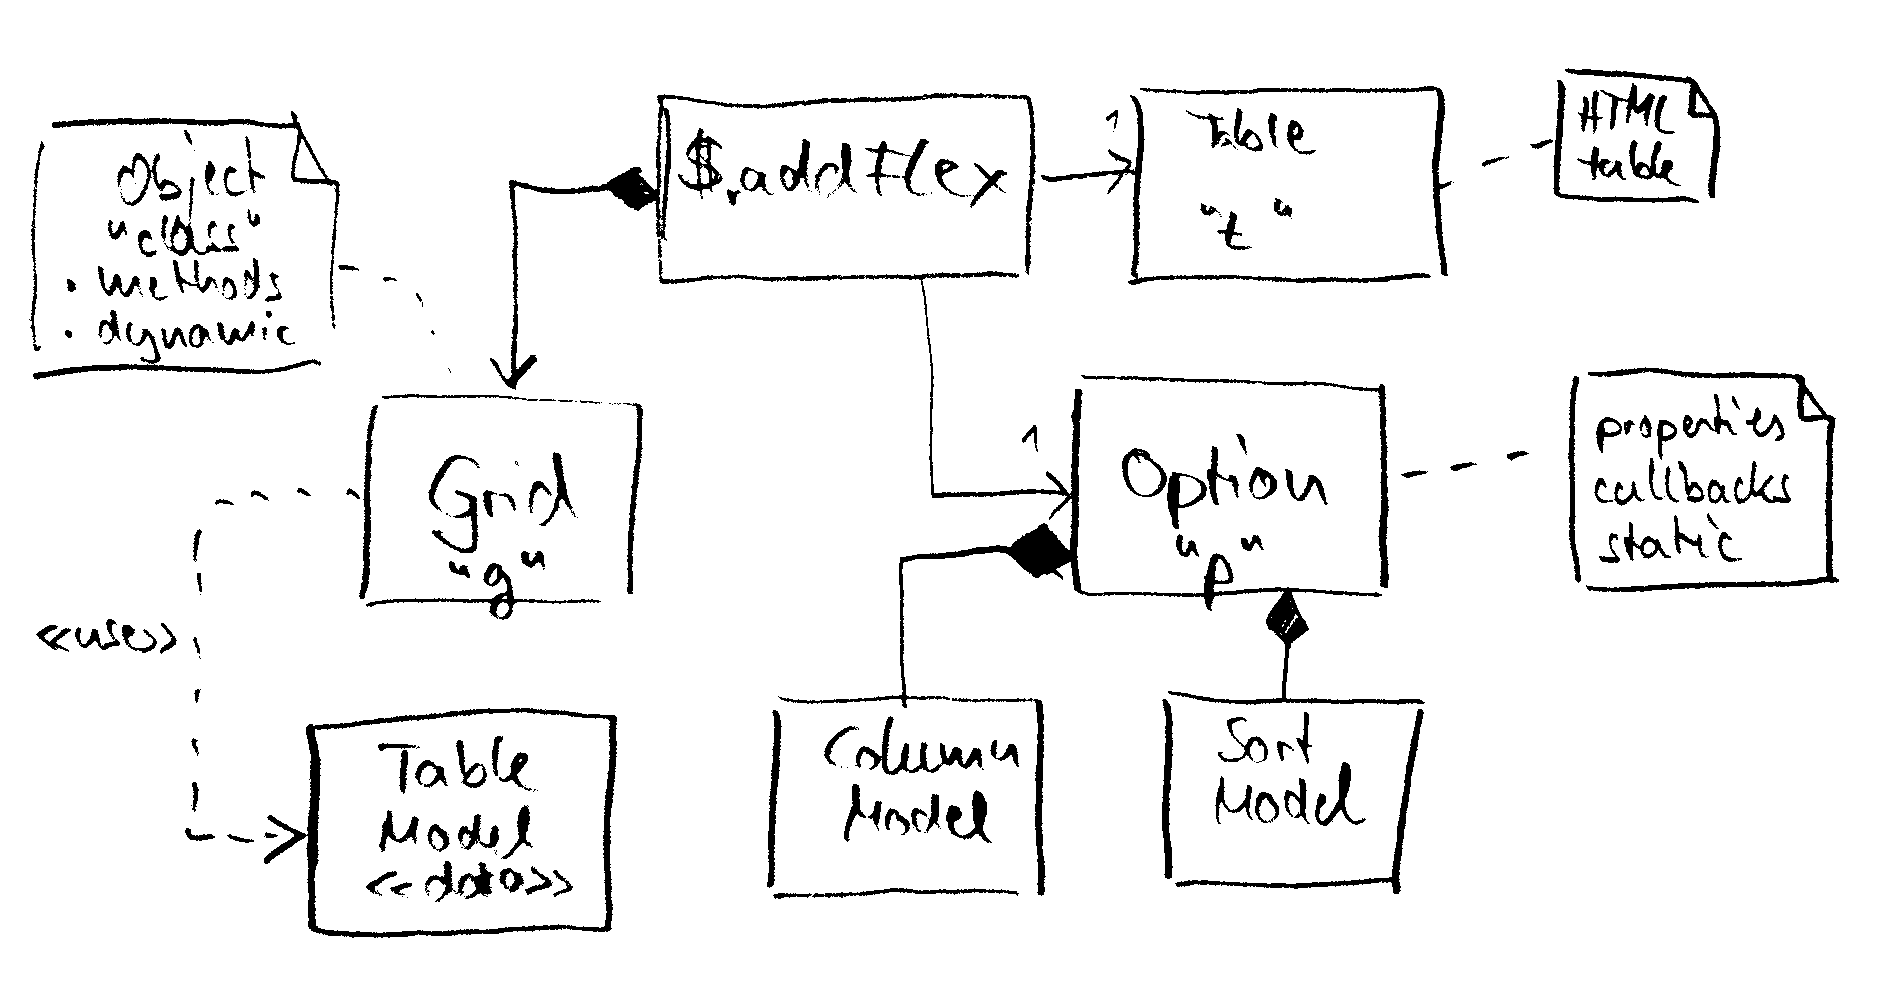 Object
"class"
• methods
• dynamic
$.addFlex
1
Table
"t"
HTML
table
Grid
"g"
1
Option
"p"
properties
callbacks
static
<<use>>
Table
Model
<<data>>
Column
Model
Sort
Model